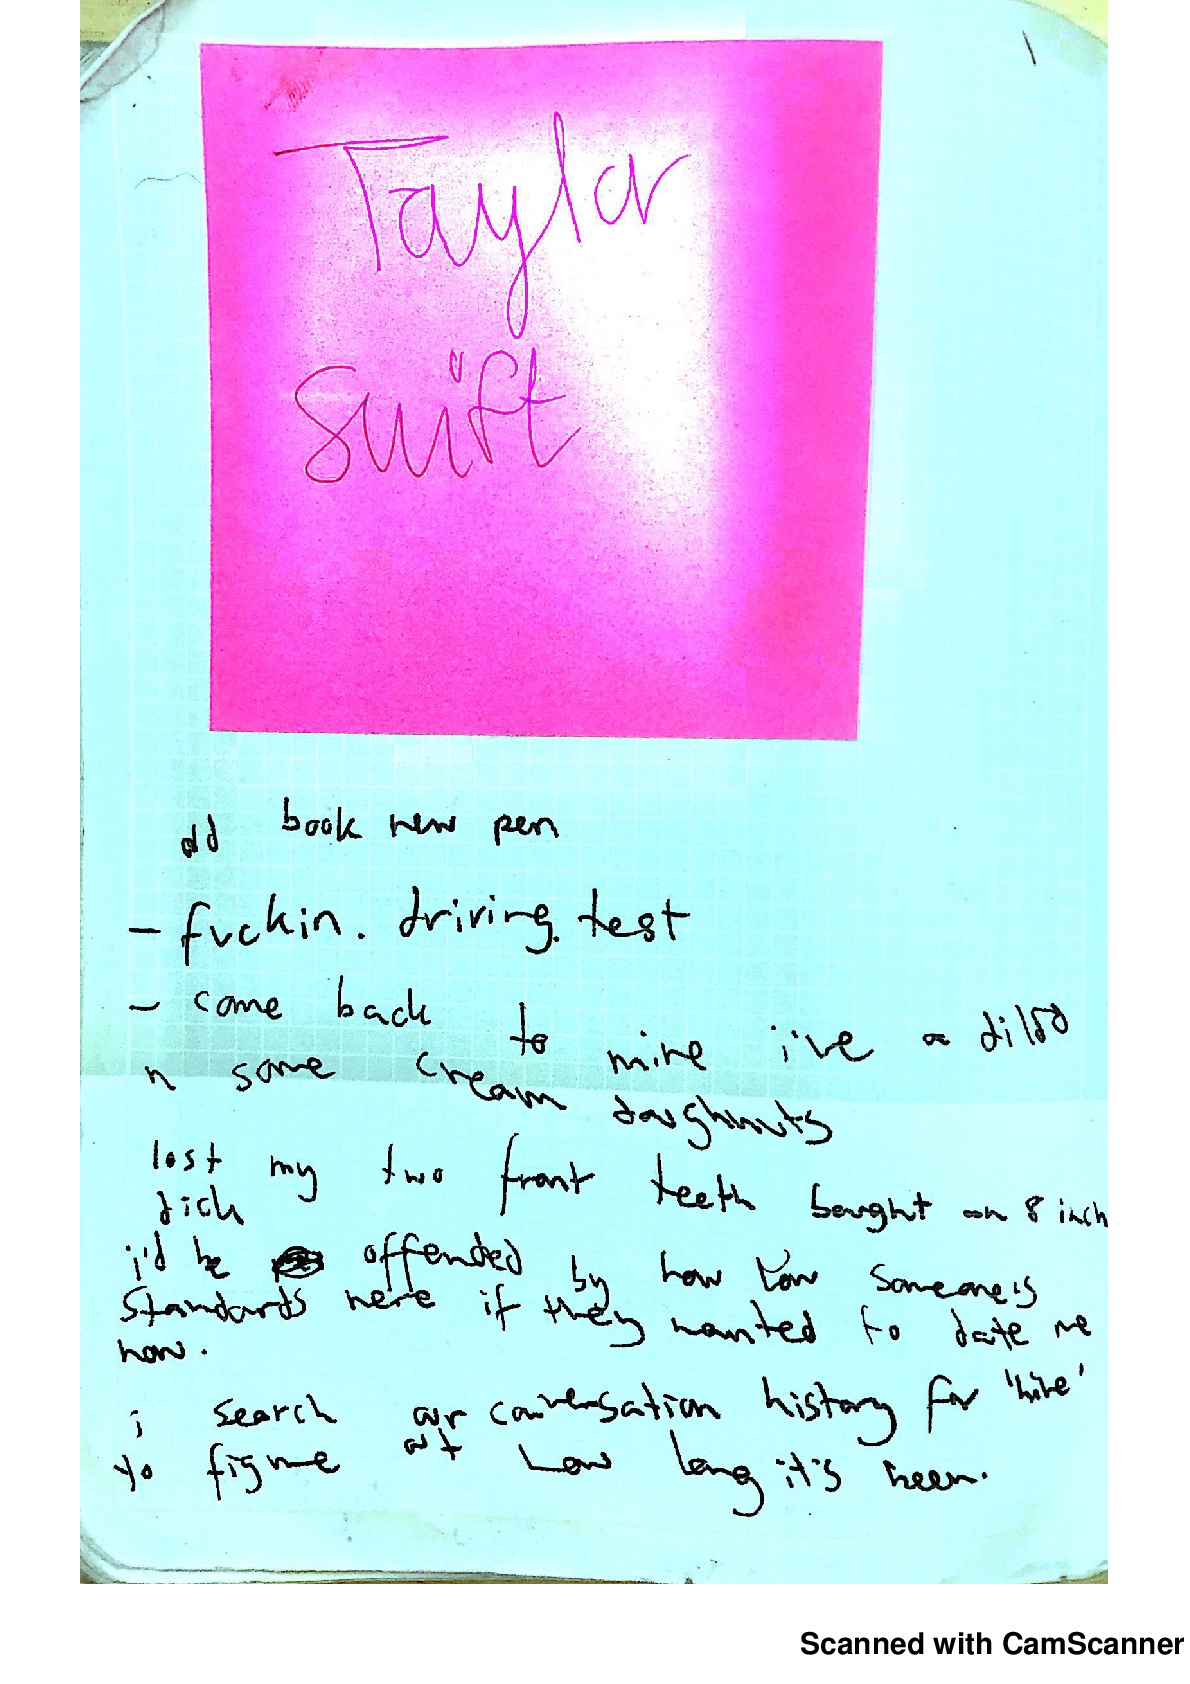 Taylor
Swift
old book new pen
- fuckin. driving. test
- come back to mine i've a dildo
n some cream doughnuts
lost my two front teeth bought an 8 inch
dick
i'd be offended by how low someone's
standards were if they wanted to date me
now.
i search our conversation history for
to figure out how long it's been.
Scanned with CamScanner